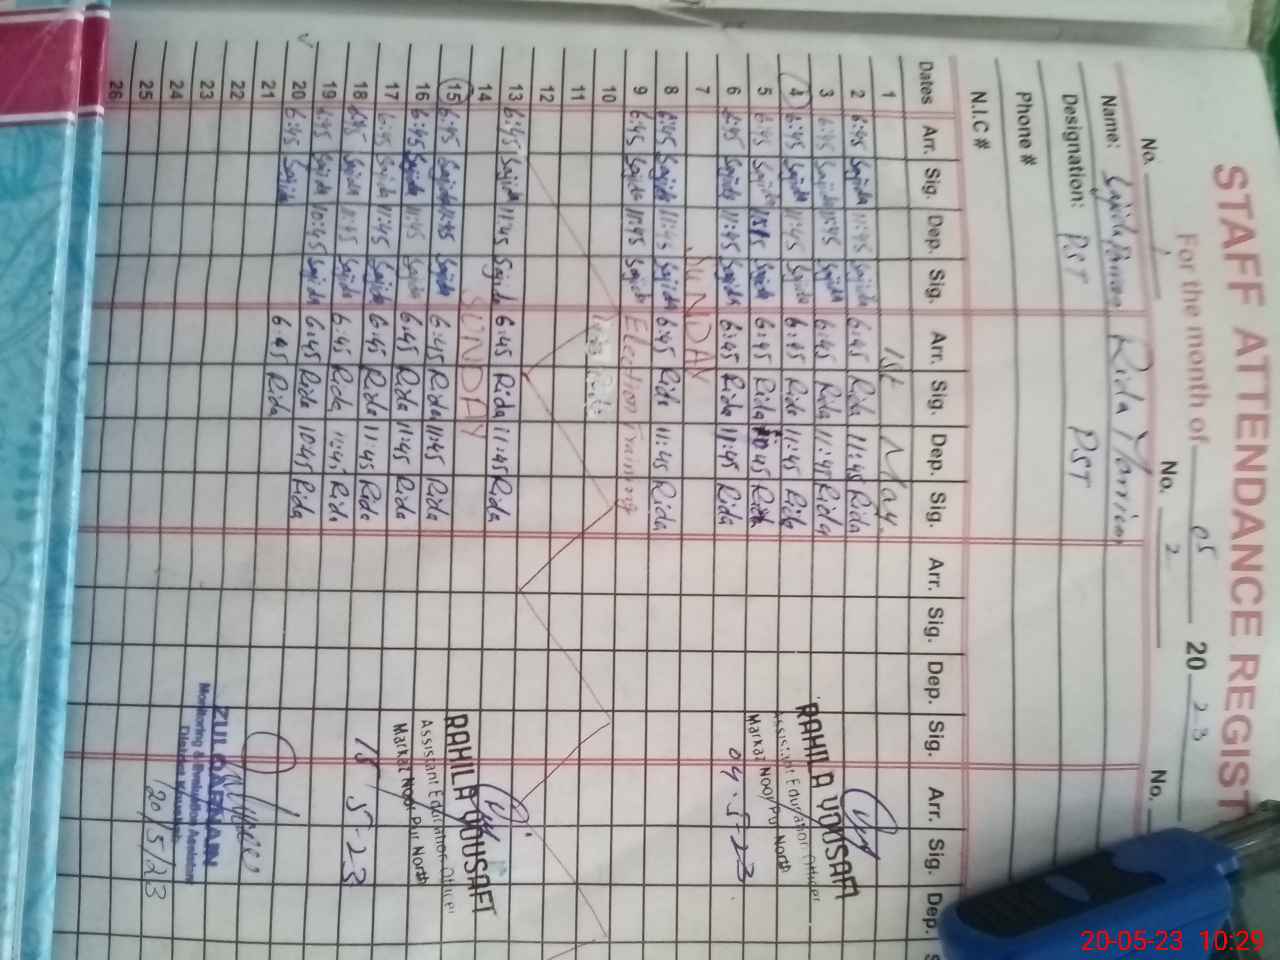 STAFF ATTENDANCE REGIST
For the month of 05 20 23
No. 1 No. 2 No.
Name: Sajida Rida
Designation: PST PST
Phone #
N.I.C #
Dates Arr. Sig. Dep. Sig. Arr. Sig. Dep. Sig. Arr. Sig. Dep. Sig. Arr. Sig. Dep.
1 1st May
2 6:45 Sajida 11:45 Sajida 6:45 Rida 11:45 Rida
3 6:45 Sajida 11:45 Sajida 6:45 Rida 11:45 Rida
4 6:45 Sajida 11:45 Sajida 6:45 Rida 11:45 Rida
5 6:45 Sajida Sajida 6:45 Rida 10:45 Rida
6 6:45 Sajida 11:45 Sajida 6:45 Rida 11:45 Rida
7 SUNDAY
8 6:45 Sajida 11:45 Sajida 6:45 Rida 11:45 Rida
9 6:45 Sajida 11:45 Sajida Election Training
10
11
12
13 6:45 Sajida 11:45 Sajida 6:45 Rida 11:45 Rida
14 SUNDAY
15 6:45 Sajida 11:45 Sajida 6:45 Rida 11:45 Rida
16 6:45 Sajida 11:45 Sajida 6:45 Rida 11:45 Rida
17 6:45 Sajida 11:45 Sajida 6:45 Rida 11:45 Rida
18 6:45 Sajida 11:45 Sajida 6:45 Rida 11:45 Rida
19 6:45 Sajida 10:45 Sajida 6:45 Rida 10:45 Rida
20 6:45 Sajida 6:45 Rida
21
22
23
24
25
26
RAHILA YOUSAFI
Assistant Education Officer
Markaz Noor Pur North
04-5-23
RAHILA YOUSAFI
Assistant Education Officer
Markaz Noor Pur North
15-5-23
ZULQARNAIN
Monitoring & Evaluation Assistant
District Khushab
20/5/23
20-05-23 10:29